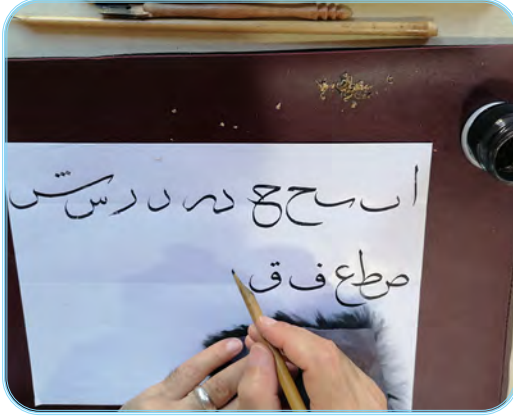 ا ب ح ح د ر س ش
ص ط ع ف ق